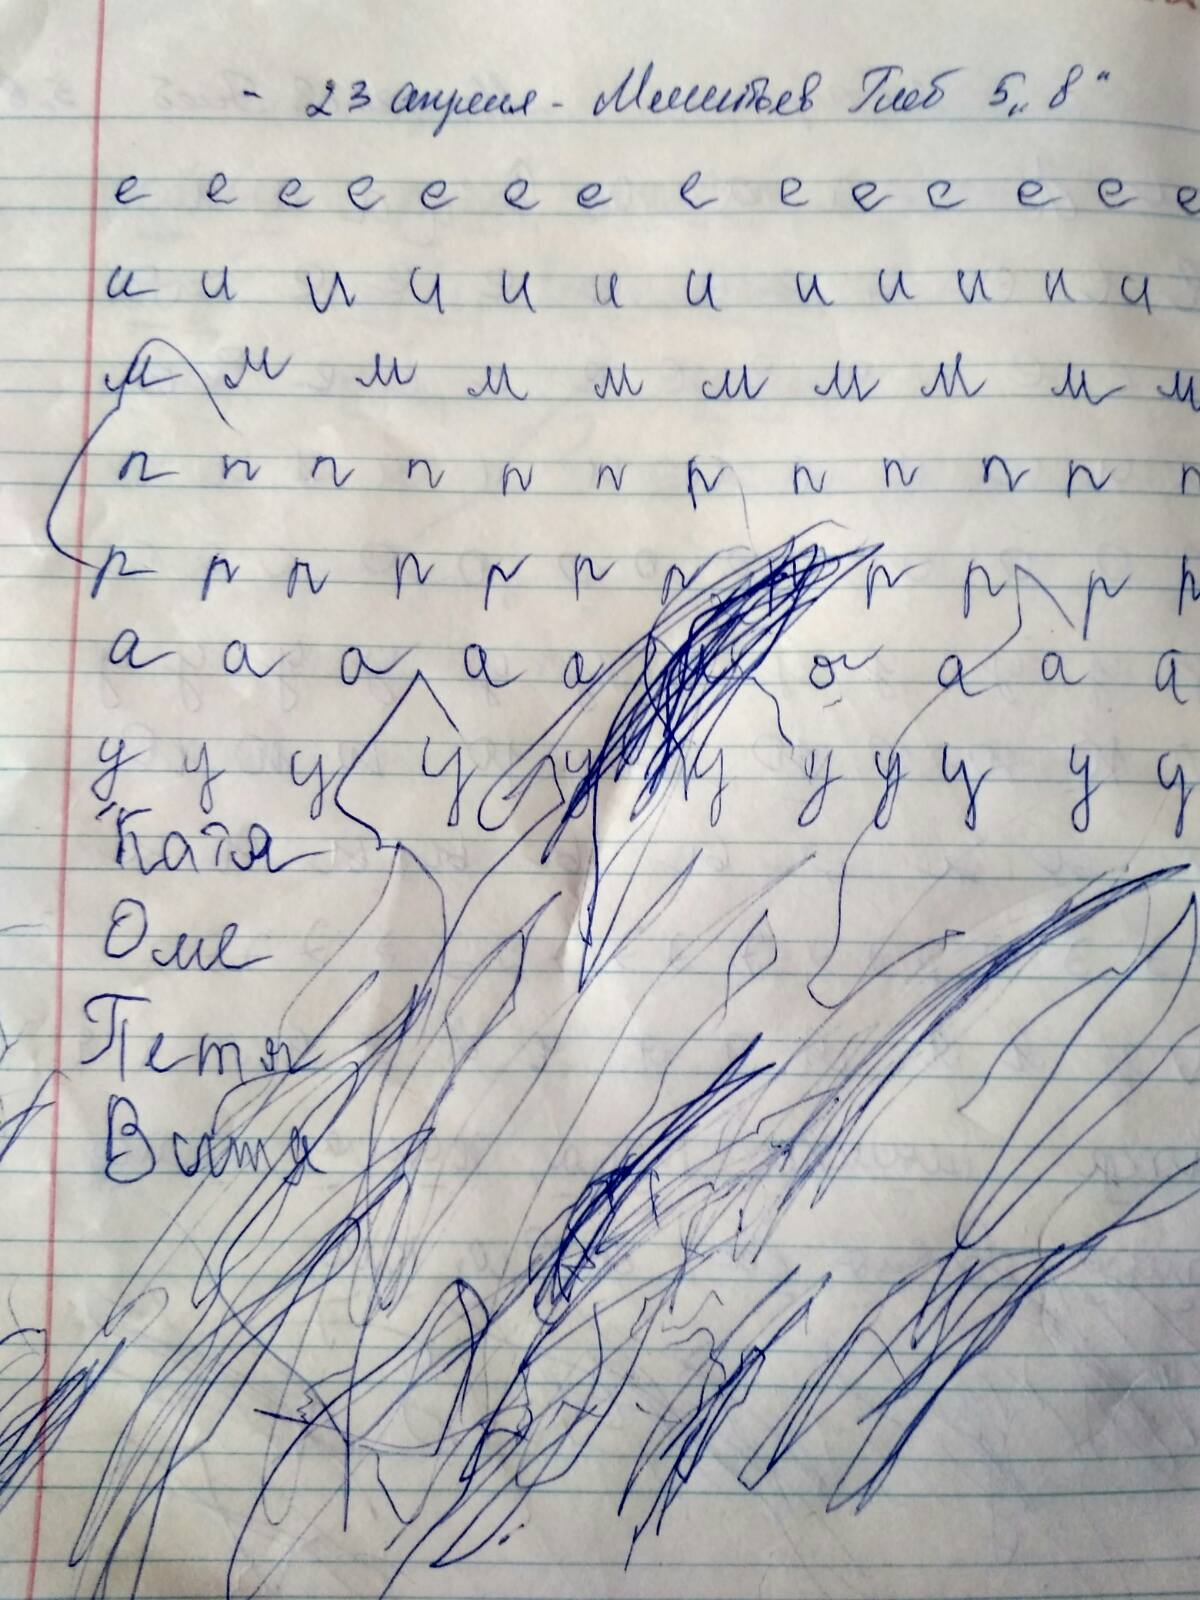 - 23 апреля - Глеб 5 „8"
е е е е е е е е е е е е е е
и и и и и и и и и и и и
м м м м м м м м м м
п п п п п п п п п п п п
р р р р р р р р р р р
а а а а а а а а а
у у у у у у у у у у у
Катя
Оме
Петя
Витя